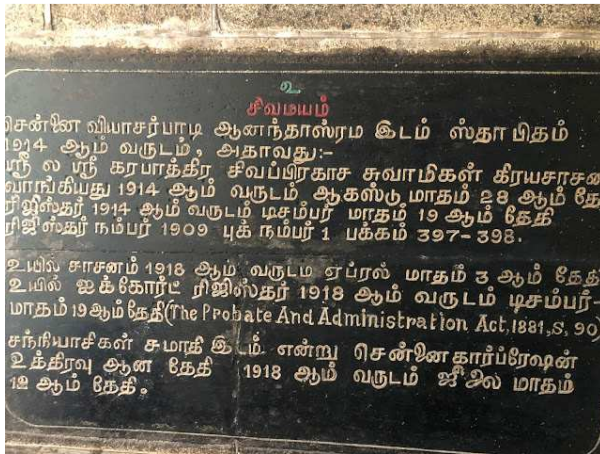 உ
சிவமயம்
சென்னை வியாசர்பாடி ஆனந்தாஸ்ரம இடம் ஸ்தாபிதம்
1914 ஆம் வருடம், அதாவது:-
ஸ்ரீ ல ஸ்ரீ கரபாத்திர சிவப்பிரகாச சுவாமிகள் கிரயசாசன
வாங்கியது 1914 ஆம் வருடம் ஆகஸ்டு மாதம் 28 ஆம் தே
ரிஜிஸ்தர் 1914 ஆம் வருடம் டிசம்பர் மாதம் 19 ஆம் தேதி
ரிஜிஸ்தர் நம்பர் 1909 புக் நம்பர் 1 பக்கம் 397-398.
உயில் சாசனம் 1918 ஆம் வருடம ஏப்ரல் மாதம் 3 ஆம் தேதி
உயில் ஐக்கோர்ட் ரிஜிஸ்தர் 1918 ஆம் வருடம் டிசம்பர்-
மாதம் 19 ஆம் தேதி(The Probate And Administration Act,1881,S, 90)
சந்நியாசிகள் சுமாதி இடம் என்று சென்னை கார்ப்ரேஷன்
உத்திரவு ஆன தேதி 1918 ஆம் வருடம் ஜூலை மாதம்
12 ஆம் தேதி.